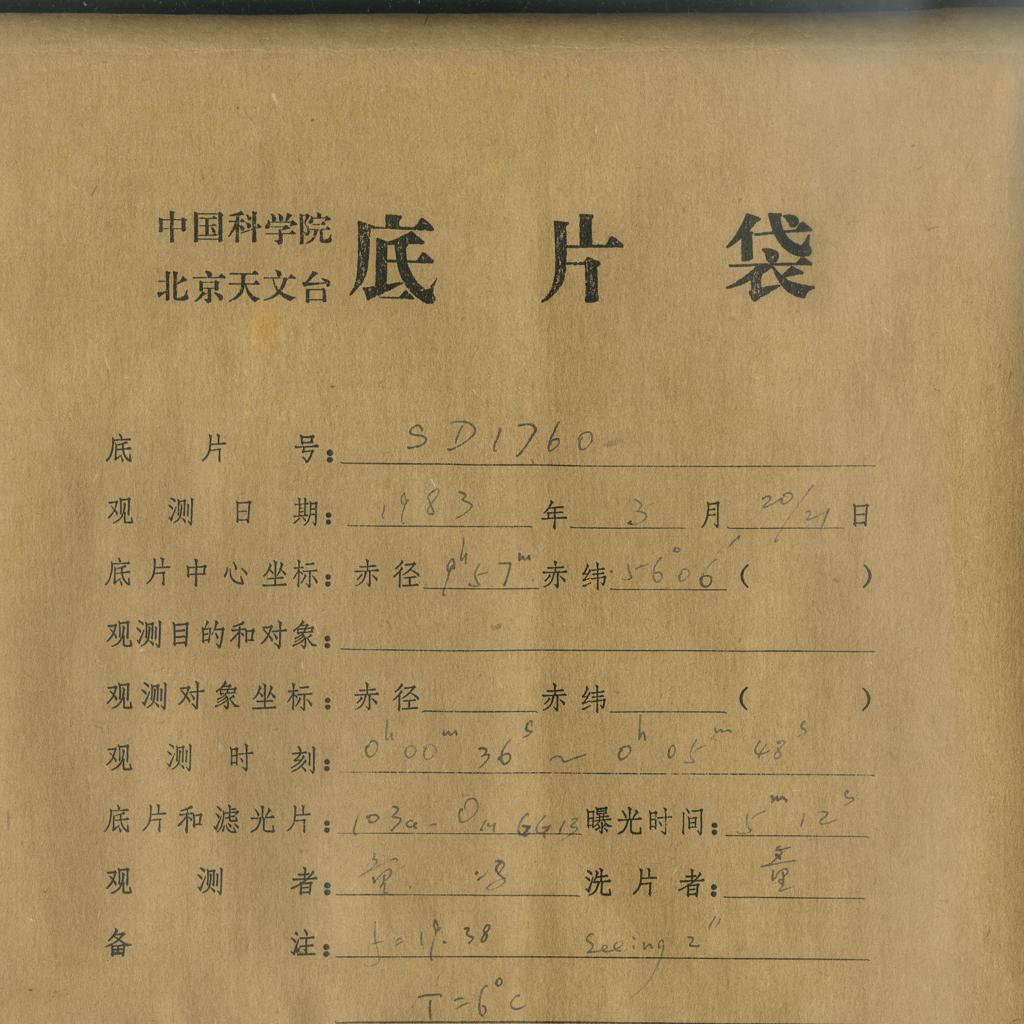 中国科学院
北京天文台
底片袋
底片号: SD1760
观测日期: 1983年3月20/21日
底片中心坐标: 赤径 9h57m 赤纬 56°06′ ( )
观测目的和对象:
观测对象坐标: 赤径 赤纬 ( )
观测时刻: 0h00m36s ~ 0h05m48s
底片和滤光片: 103a-O GG13 曝光时间: 5m12s
观测者: 洗片者:
备注: f=19.38 Seeing 2″
T=6°C